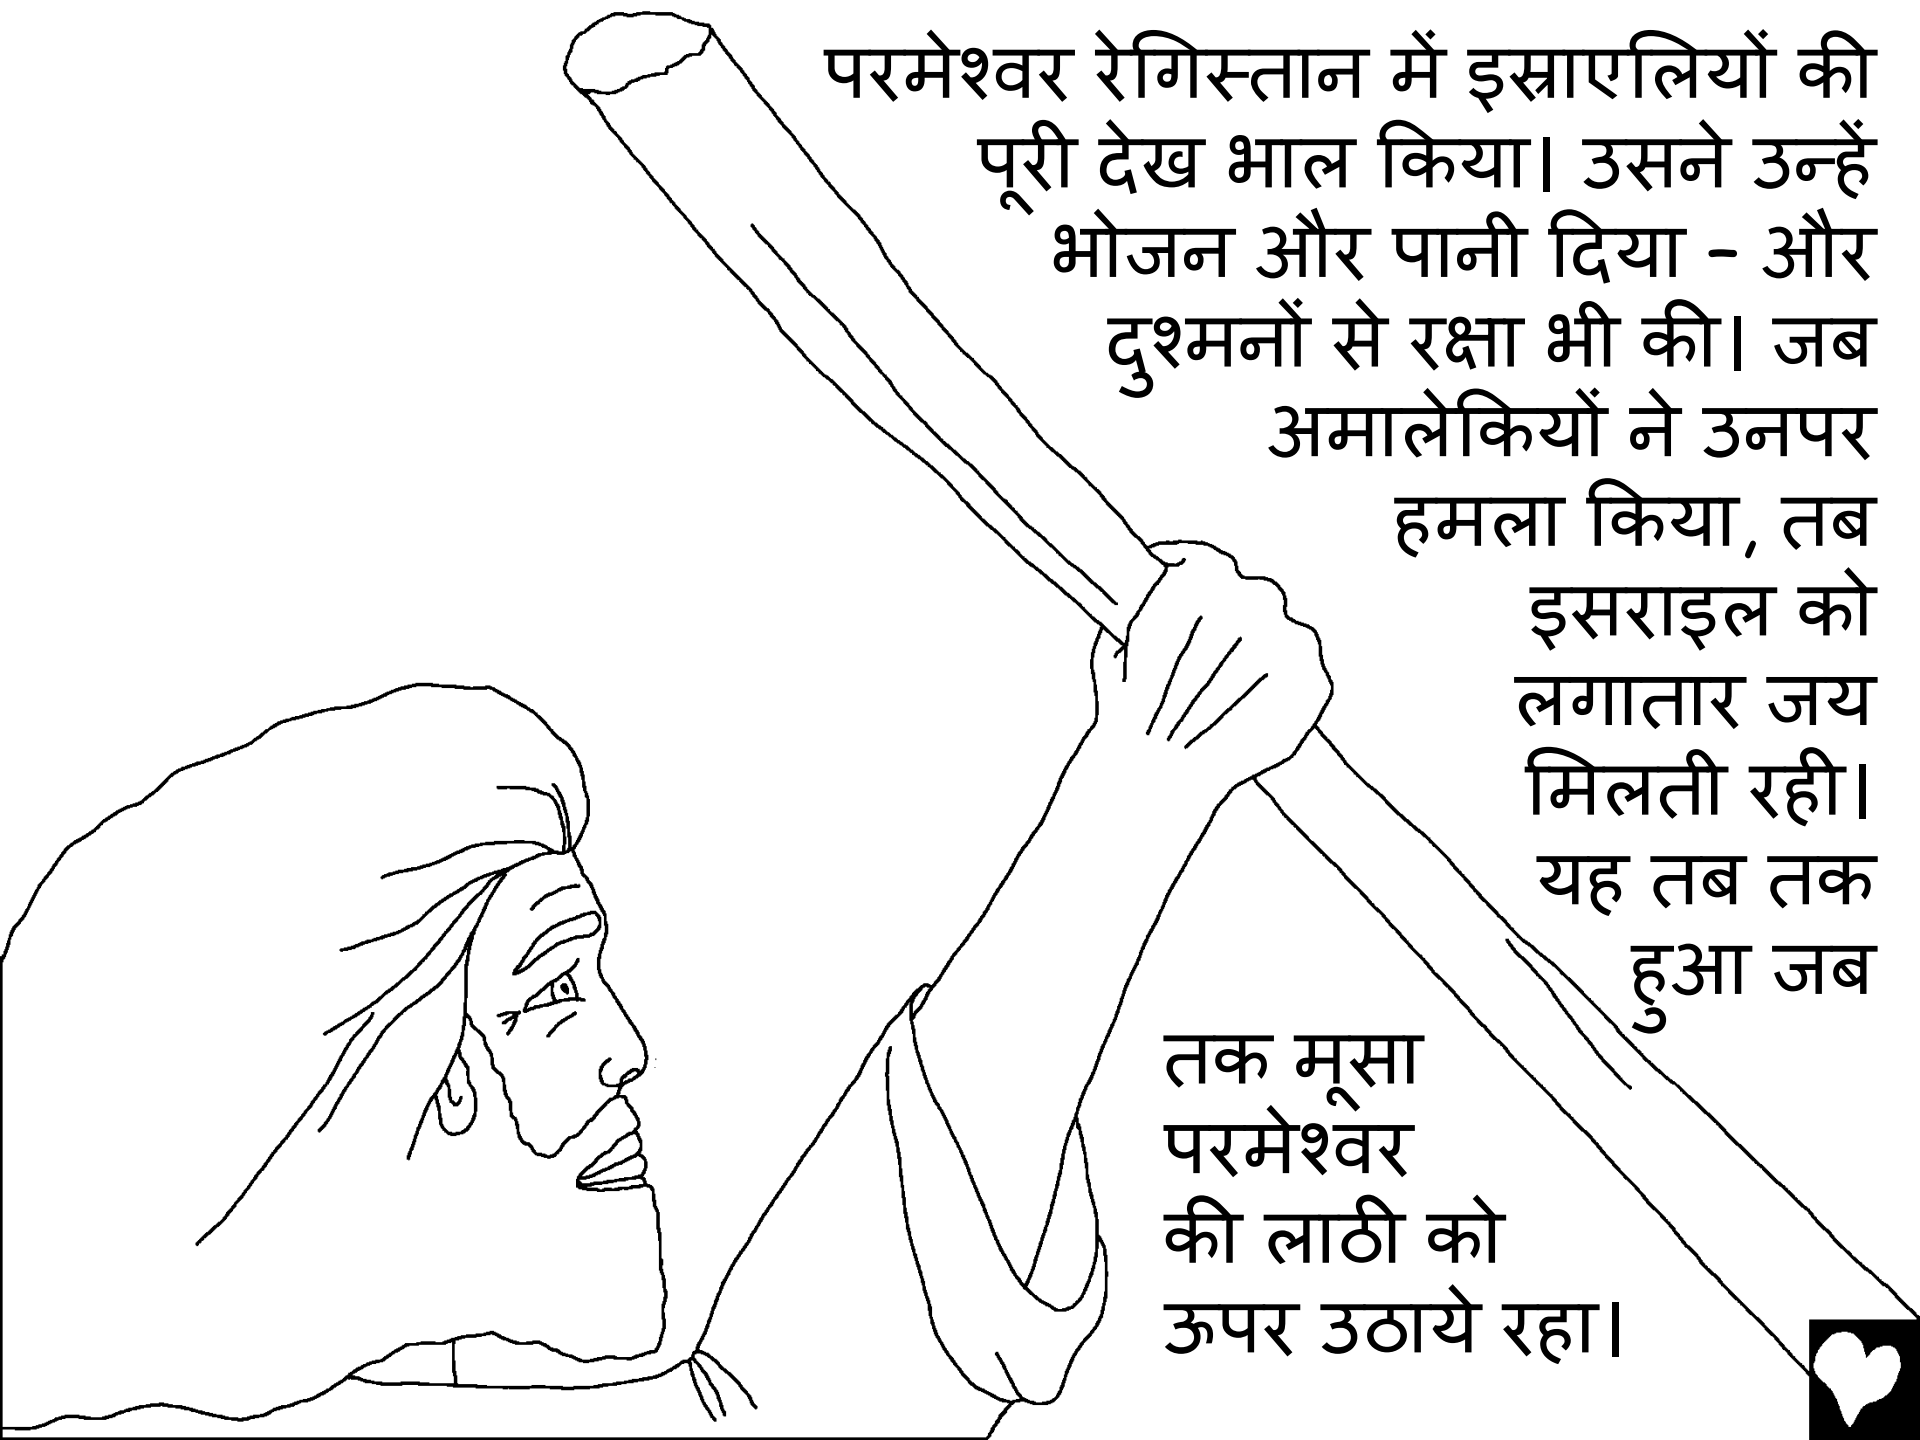 परमेश्वर रेगिस्तान में इस्राएलियों की
पूरी देख भाल किया। उसने उन्हें
भोजन और पानी दिया – और
दुश्मनों से रक्षा भी की। जब
अमालेकियों ने उनपर
हमला किया, तब
इसराइल को
लगातार जय
मिलती रही।
यह तब तक
हुआ जब
तक मूसा
परमेश्वर
की लाठी को
ऊपर उठाये रहा।